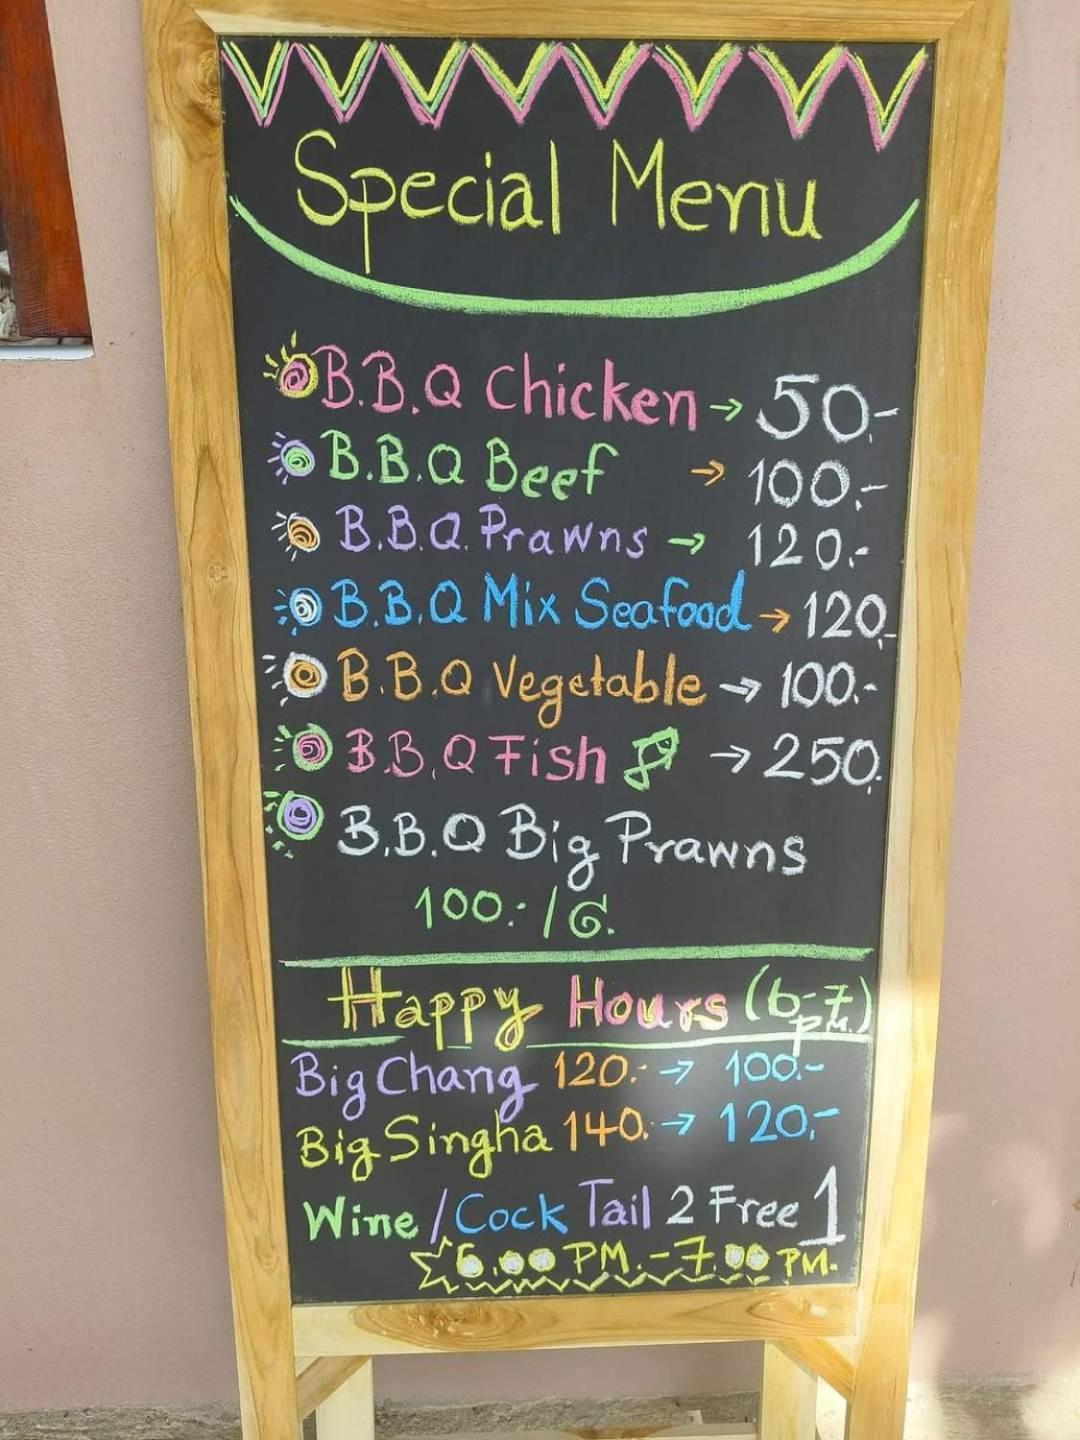 Special Menu
B.B.Q Chicken → 50.-
B.B.Q Beef → 100.-
B.B.Q. Prawns → 120.-
B.B.Q Mix Seafood → 120.-
B.B.Q Vegetable → 100.-
B.B.Q Fish → 250.
B.B.Q Big Prawns
100.-/G.
Happy Hours (6-7 P.M.)
Big Chang 120.- → 100.-
Big Singha 140. → 120.-
Wine / Cock Tail 2 Free 1
6.00 PM. - 7.00 PM.